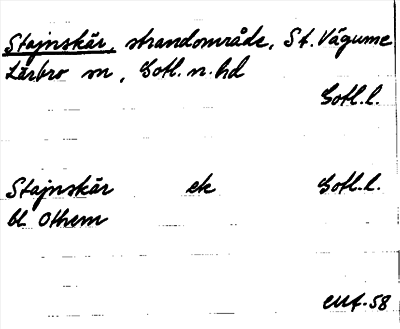 Stajnskär, strandområde, St. Vägume
Lärbro sn, Gotl. n. hd
Gotl. l.
Stajnskär ek Gotl. l.
bl Othem